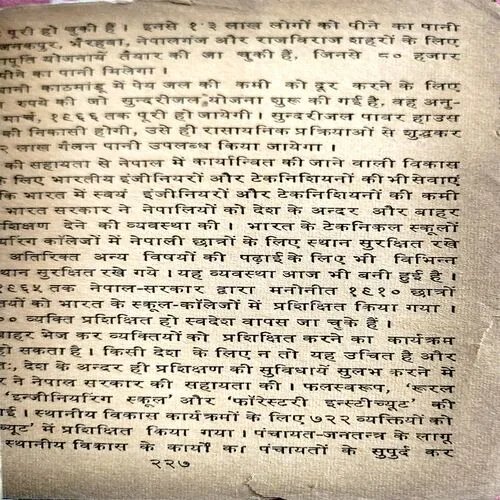 पूरी हो चुकी हैं। इनसे १·३ लाख लोगों को पीने का पानी
जनकपुर, भैरहवा, नेपालगंज और राजविराज शहरों के लिए
पूर्ति योजनायें तैयार की जा चुकी हैं, जिनसे ८० हजार
पीने का पानी मिलेगा।
धानी काठमांडू में पेय जल की कमी को दूर करने के लिए
रुपये की जो सुन्दरीजल योजना शुरू की गई है, वह अनु-
मार्च, १९६६ तक पूरी हो जायेगी। सुन्दरीजल पावर हाउस
की निकासी होगी, उसे ही रासायनिक प्रक्रियाओं से शुद्धकर
२ लाख गैलन पानी उपलब्ध किया जायेगा।
की सहायता से नेपाल में कार्यान्वित की जाने वाली विकास
लिए भारतीय इंजीनियरों और टेकनिशियनों की भी सेवाएं
कि भारत में स्वयं इंजीनियरों और टेकनिशियनों की कमी
भारत सरकार ने नेपालियों को देश के अन्दर और बाहर
शिक्षण देने की व्यवस्था की। भारत के टेकनिकल स्कूलों
यरिंग कॉलेजों में नेपाली छात्रों के लिए स्थान सुरक्षित रखे
अतिरिक्त अन्य विषयों की पढ़ाई के लिए भी विभिन्न
थान सुरक्षित रखे गये। यह व्यवस्था आज भी बनी हुई है।
१९६५ तक नेपाल-सरकार द्वारा मनोनीत १९१० छात्रों
तयों को भारत के स्कूल-कॉलेजों में प्रशिक्षित किया गया।
०० व्यक्ति प्रशिक्षित हो स्वदेश वापस जा चुके हैं।
बाहर भेज कर व्यक्तियों को प्रशिक्षित करने का कार्यक्रम
ही सकता है। किसी देश के लिए न तो यह उचित है और
तः, देश के अन्दर ही प्रशिक्षण की सुविधायें सुलभ करने में
र ने नेपाल सरकार की सहायता की। फलस्वरूप, 'रूरल
'इन्जीनियरिंग स्कूल' और 'फॉरेस्टरी इन्स्टीच्यूट' की
गई। स्थानीय विकास कार्यक्रमों के लिए ७२२ व्यक्तियों को
च्यूट' में प्रशिक्षित किया गया। पंचायत-जनतन्त्र के लागू
स्थानीय विकास के कार्यों का पंचायतों के सुपुर्द कर
२२७